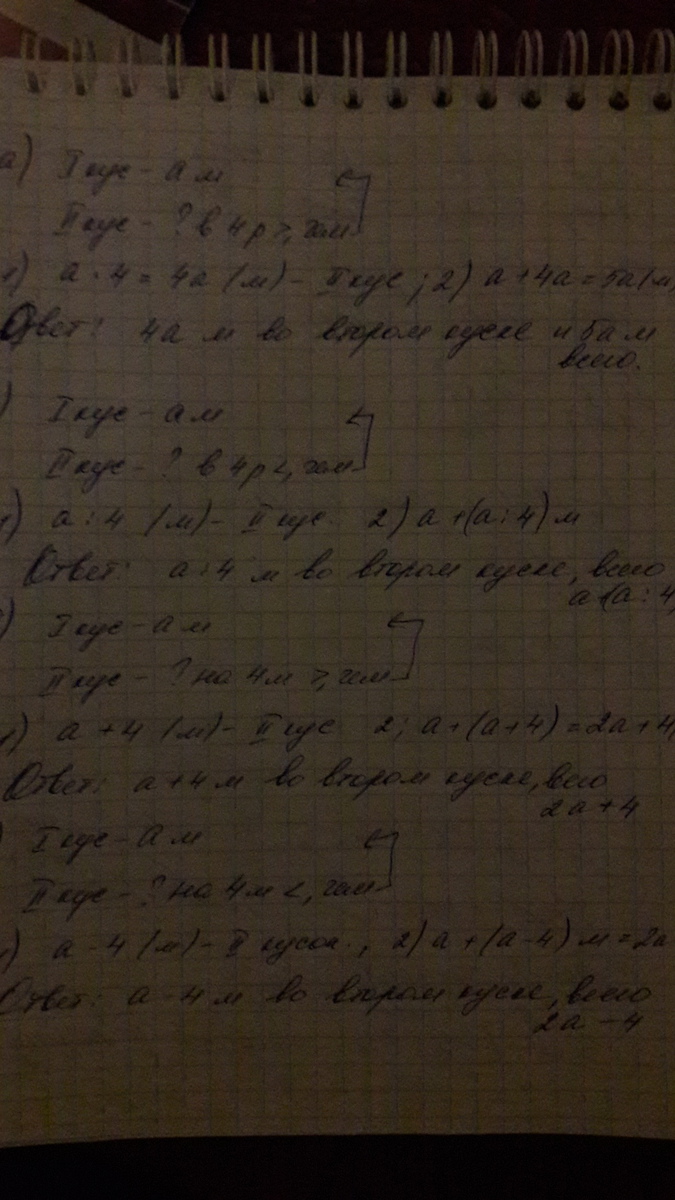 а) I кус - а м
II кус - ? в 4 р >, чем
1) а · 4 = 4а (м) - II кус ; 2) а + 4а = 5а (м)
Ответ: 4а м во втором куске и 5а м
всего.
) I кус - а м
II кус - ? в 4 р <, чем
1) а : 4 (м) - II кус. 2) а + (а : 4) м
Ответ: а : 4 м во втором куске, всего
а + (а : 4)
) I кус - а м
II кус - ? на 4 м >, чем
1) а + 4 (м) - II кус 2) а + (а + 4) = 2а + 4
Ответ: а + 4 м во втором куске, всего
2а + 4
) I кус - а м
II кус - ? на 4 м <, чем
1) а - 4 (м) - II кусок., 2) а + (а - 4) м = 2а
Ответ: а - 4 м во втором куске, всего
2а - 4